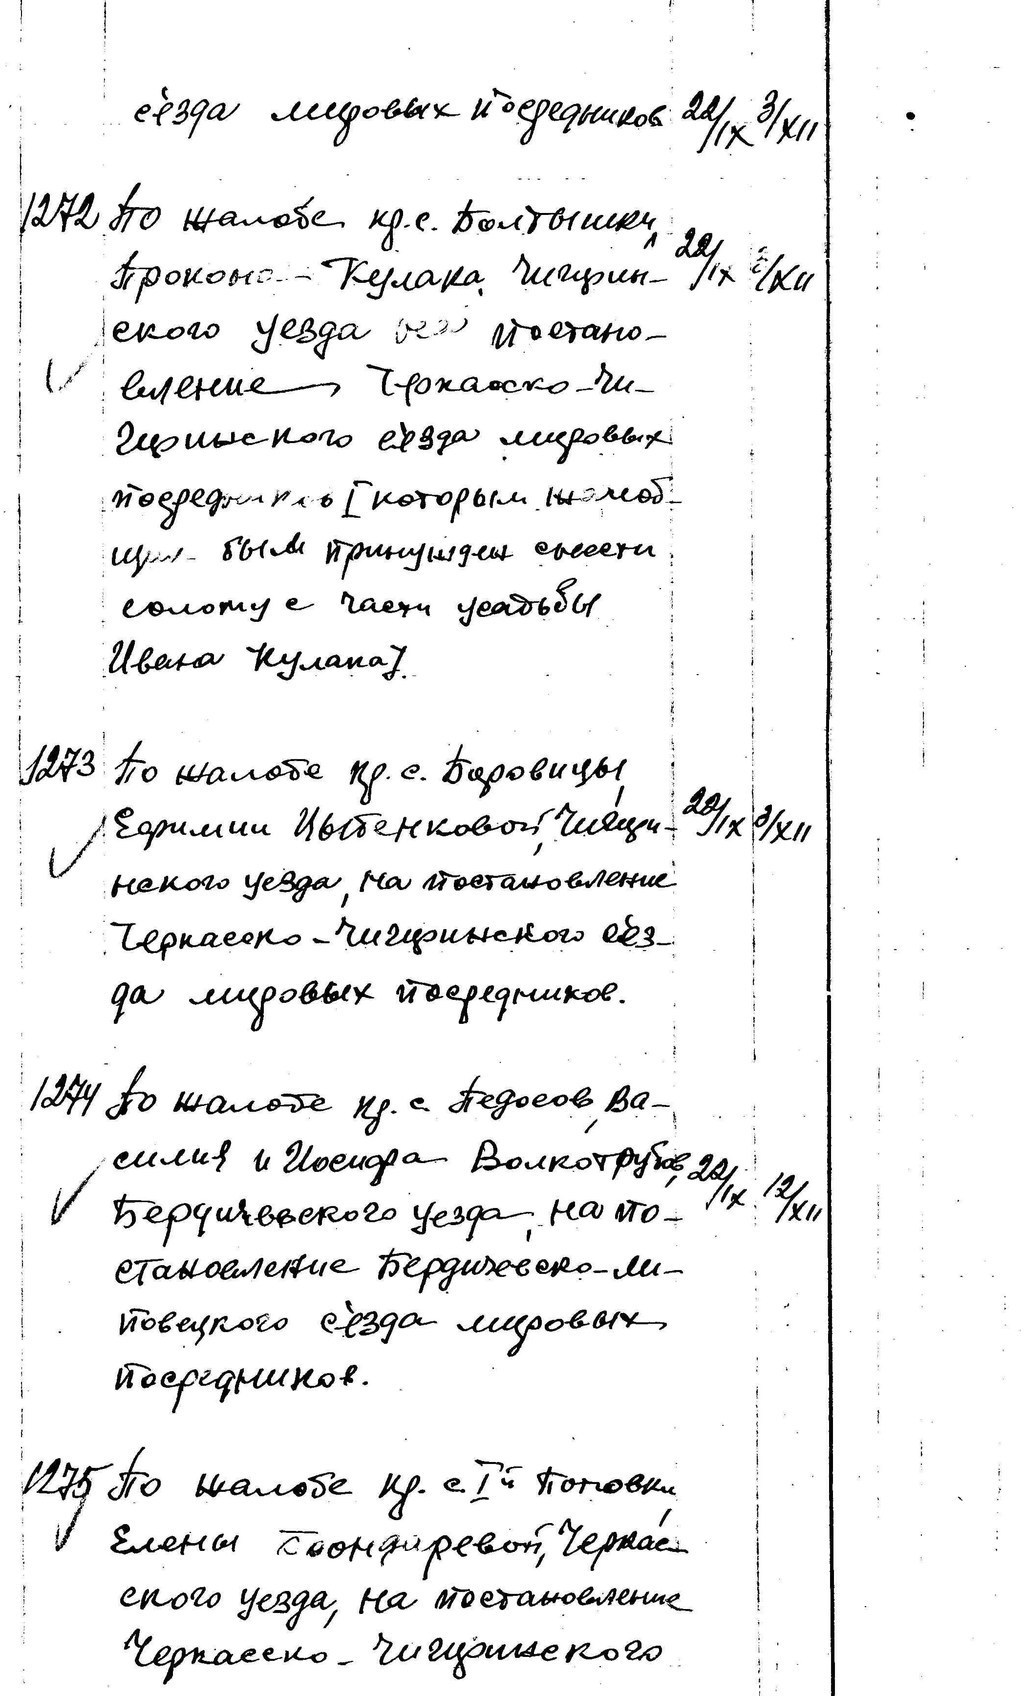 съезда мировых посредников 22/IX 3/XII
1272 По жалобе кр. с. Болтышки,
Кулака, Чигирин- 22/IX /XII
ского уезда постано-
вление Черкасско-Чи-
гиринского съезда мировых
посредников [которым жалоб-
щик был принужден снести
солому с части усадьбы
Ивана Кулака].
1273 По жалобе кр. с. Боровицы,
Ефимии Цыбенковой, Чигири- 22/IX 3/XII
нского уезда, на постановление
Черкасско-Чигиринского съез-
да мировых посредников.
1274 По жалобе кр. с. Педосов, Ва-
силия и Иосифа Волкотрубов, 22/IX 12/XII
Бердичевского уезда, на по-
становление Бердичевско-Ли-
повецкого съезда мировых
посредников.
1275 По жалобе кр. с. Iй Поповки,
Елены Бондаревой, Черкас-
ского уезда, на постановление
Черкасско-Чигиринского